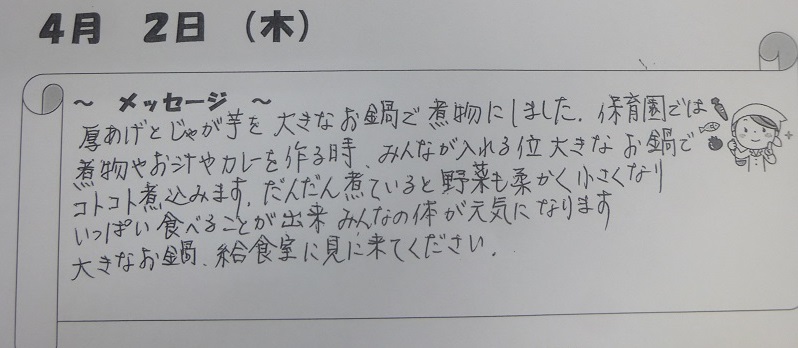 4月 2日 (木)
~ メッセージ ~
厚あげとじゃが芋を大きなお鍋で煮物にしました。保育園では
煮物やお汁やカレーを作る時、みんなが入れる位大きなお鍋で
コトコト煮込みます。だんだん煮ていると野菜も柔かく小さくなり
いっぱい食べることが出来みんなの体が元気になります
大きなお鍋、給食室に見に来てください。